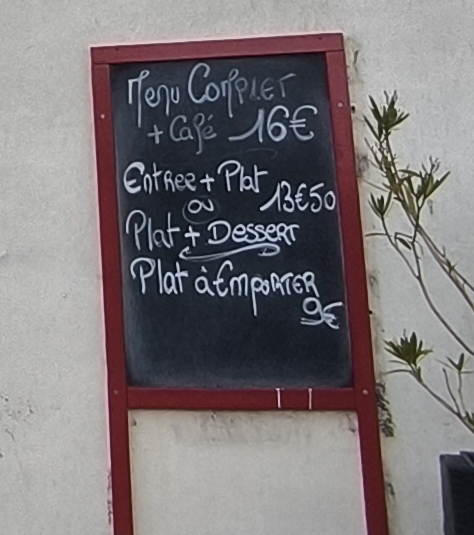 Menu Complet
+ Café 16€
Entree + Plat
ou 13€50
Plat + Dessert
Plat à Emporter
9€